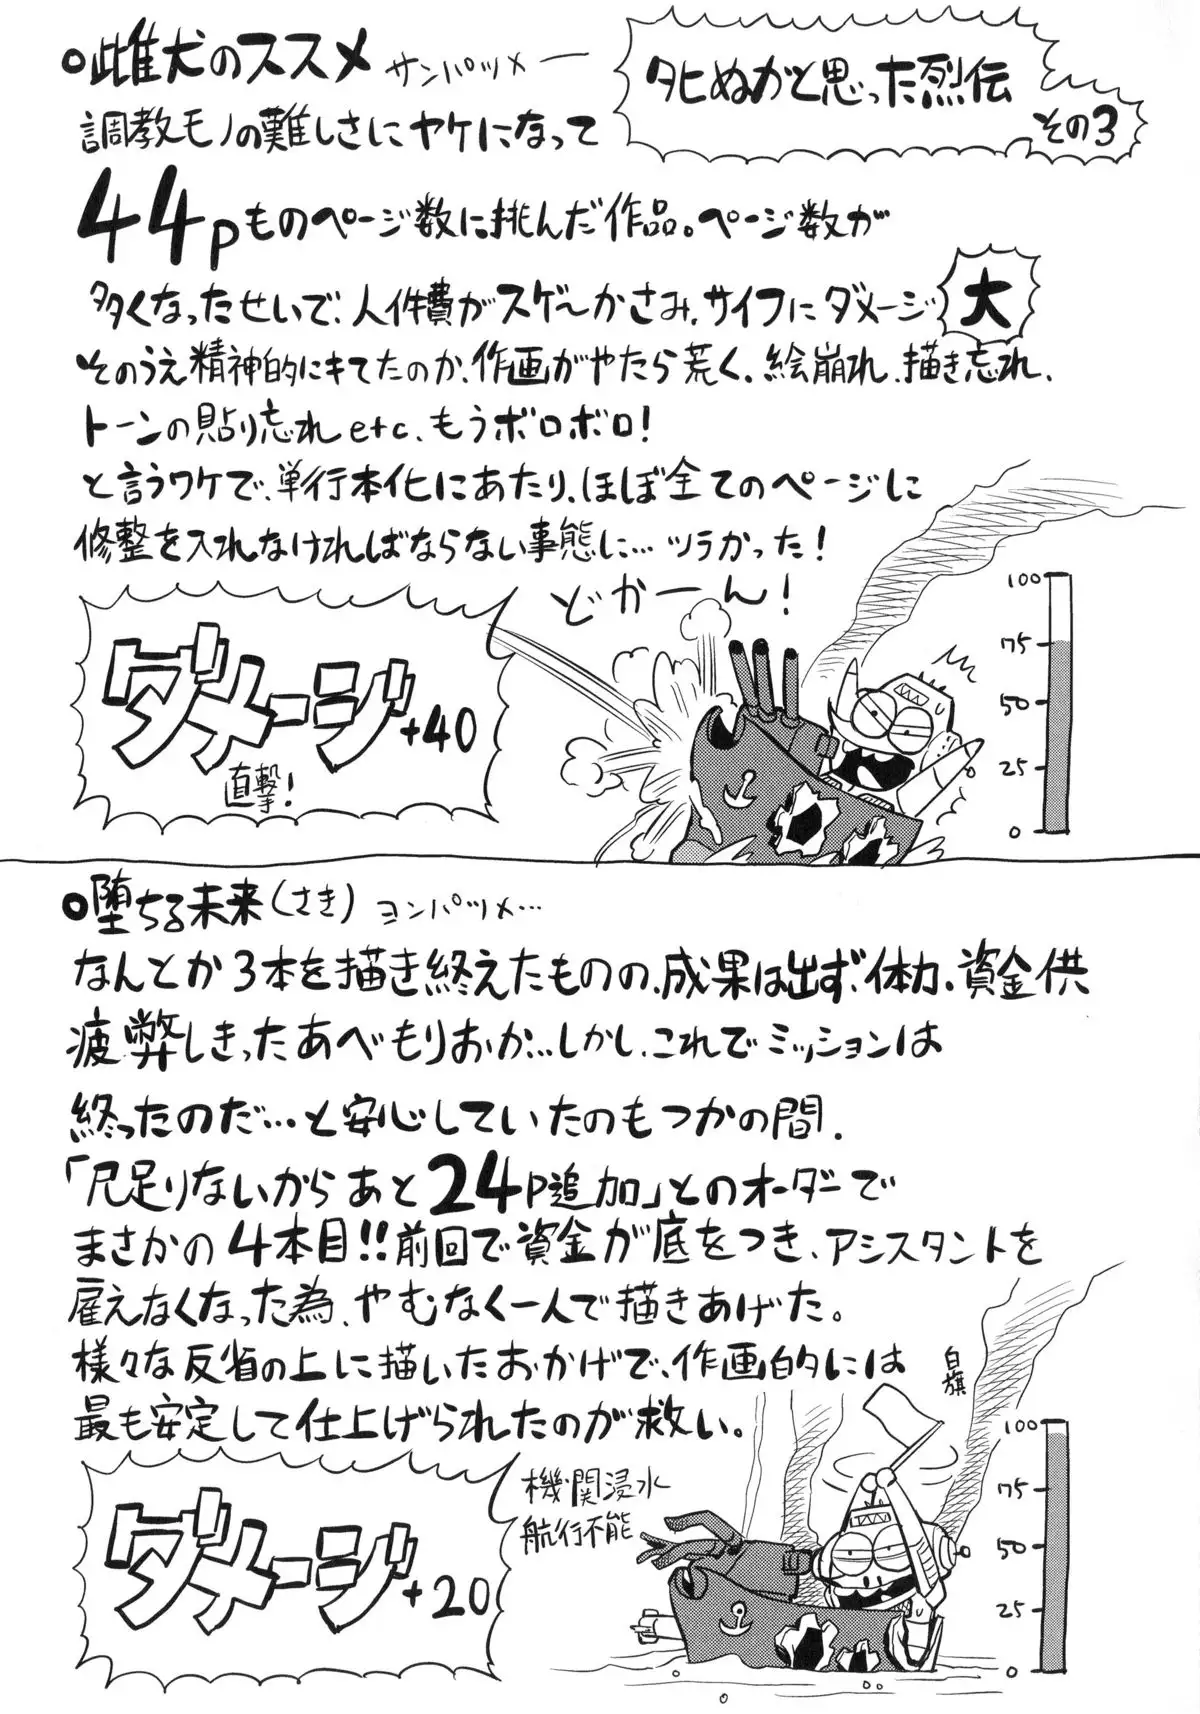 タヒぬかと思った烈伝
その3
○雌犬のススメ サンパツメー
調教モノの難しさにヤケになって
44pものページ数に挑んだ作品。ページ数が
多くなったせいで、人件費がスゲ〜かさみ、サイフにダメージ大
そのうえ精神的にキてたのか、作画がやたら荒く、絵崩れ、描き忘れ、
トーンの貼り忘れetc、もうボロボロ!
と言うワケで、単行本化にあたり、ほぼ全てのページに
修整を入れなければならない事態に…ツラかった!
どかーん!
ダメージ+40
直撃!
100
75
50
25
0
○堕ちる未来(さき) ヨンパツメ…
なんとか3本を描き終えたものの、成果は出ず、体力、資金供
疲弊しきったあべもりおか…しかし、これでミッションは
終ったのだ…と安心していたのもつかの間、
「尺足りないから あと24P追加」とのオーダーで
まさかの4本目!!前回で資金が底をつき、アシスタントを
雇えなくなった為、やむなく一人で描きあげた。
様々な反省の上に描いたおかげで、作画的には
最も安定して仕上げられたのが救い。
白旗
機関浸水
航行不能
ダメージ+20
100
75
50
25
0